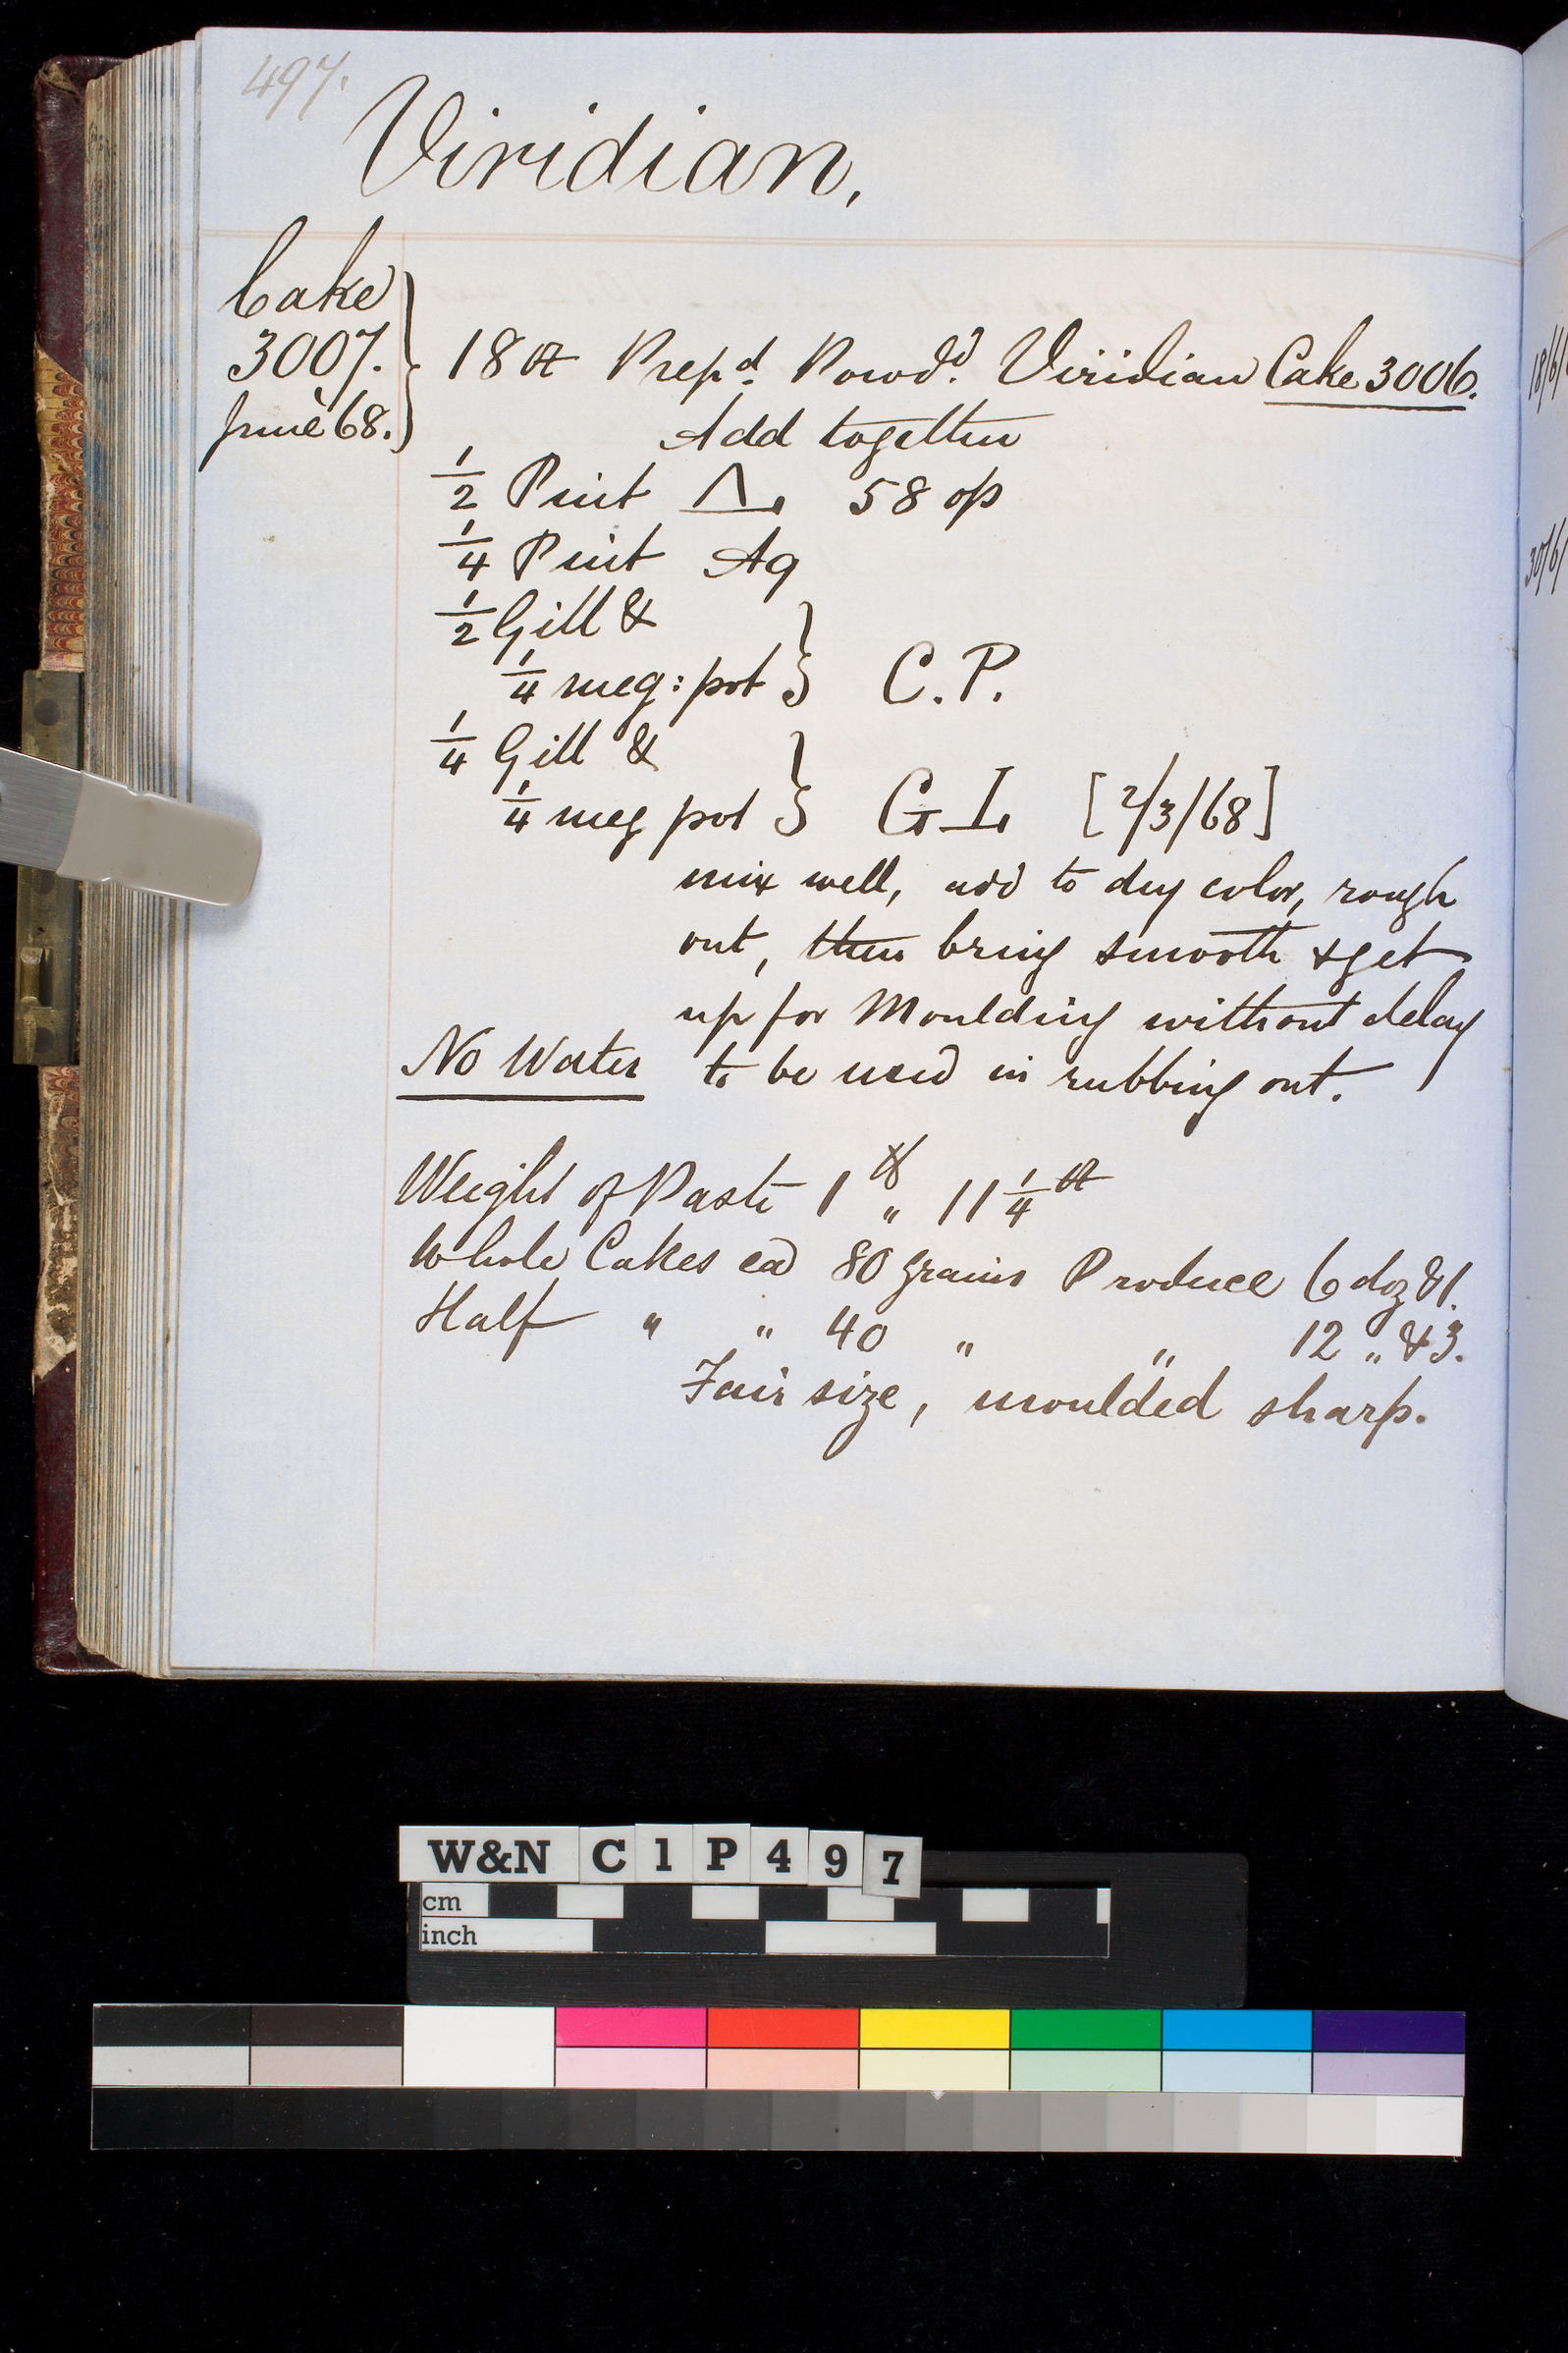 497.
Viridian,
Cake
3007.
June 68.
18 oz Prepd. Powdd. Viridian Cake 3006.
Add together
1/2 Pint Λ. 58 op
1/4 Pint Aq
1/2 Gill &
1/4 meg: pot } C.P.
1/4 Gill &
1/4 meg pot } G I. [2/3/68]
mix well, add to dry color, rough
out, then bring smooth & get
up for Moulding without delay
No Water to be used in rubbing out.
Weight of Paste 1 lb „ 11 1/4 oz
Whole Cakes ea 80 grains Produce 6 doz & 1.
Half " " 40 " " 12 „ & 3.
Fair size, moulded sharp.
18/6/
30/6/
W&N C1P497
cm
inch